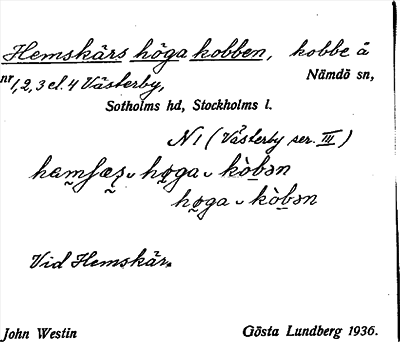 Hemskärs höga kobben, kobbe å
nr 1, 2, 3 el. 4 Västerby,
Nämdö sn,
Sotholms hd, Stockholms l.
N 1 (Västerby ser. III)
Vid Hemskär.
John Westin
Gösta Lundberg 1936.